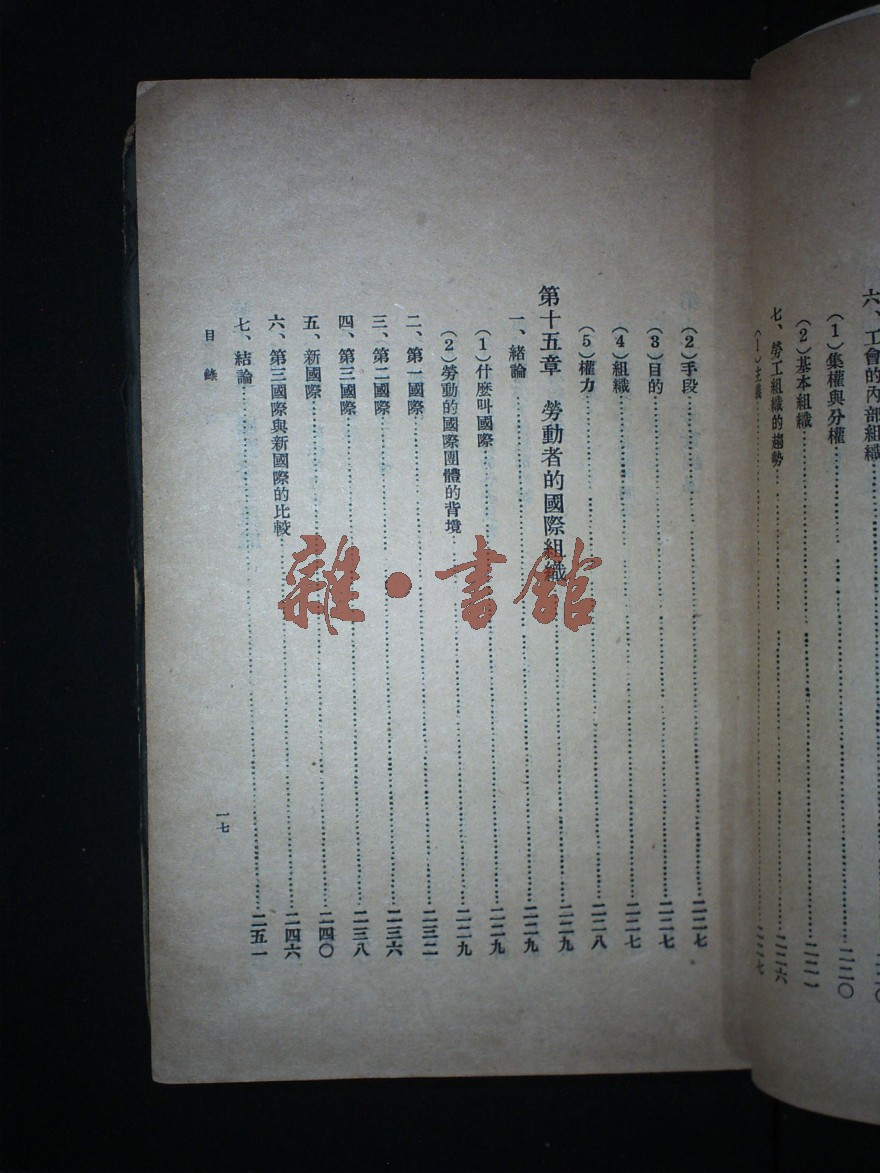 六、工會的內部組織
(1)集權與分權……二二〇
(2)基本組織……
七、勞工組織的趨勢……二二六
(1)主義……二二七
(2)手段……二二七
(3)目的……二二七
(4)組織……二二七
(5)權力……二二八
第十五章 勞動者的國際組織……二二九
一、緒論……二二九
(1)什麼叫國際……二二九
(2)勞動的國際團體的背境……二二九
二、第一國際……二三二
三、第二國際……二三六
四、第三國際……二三八
五、新國際……二四〇
六、第三國際與新國際的比較……二四六
七、結論……二五一
目錄
一七
雜·書館